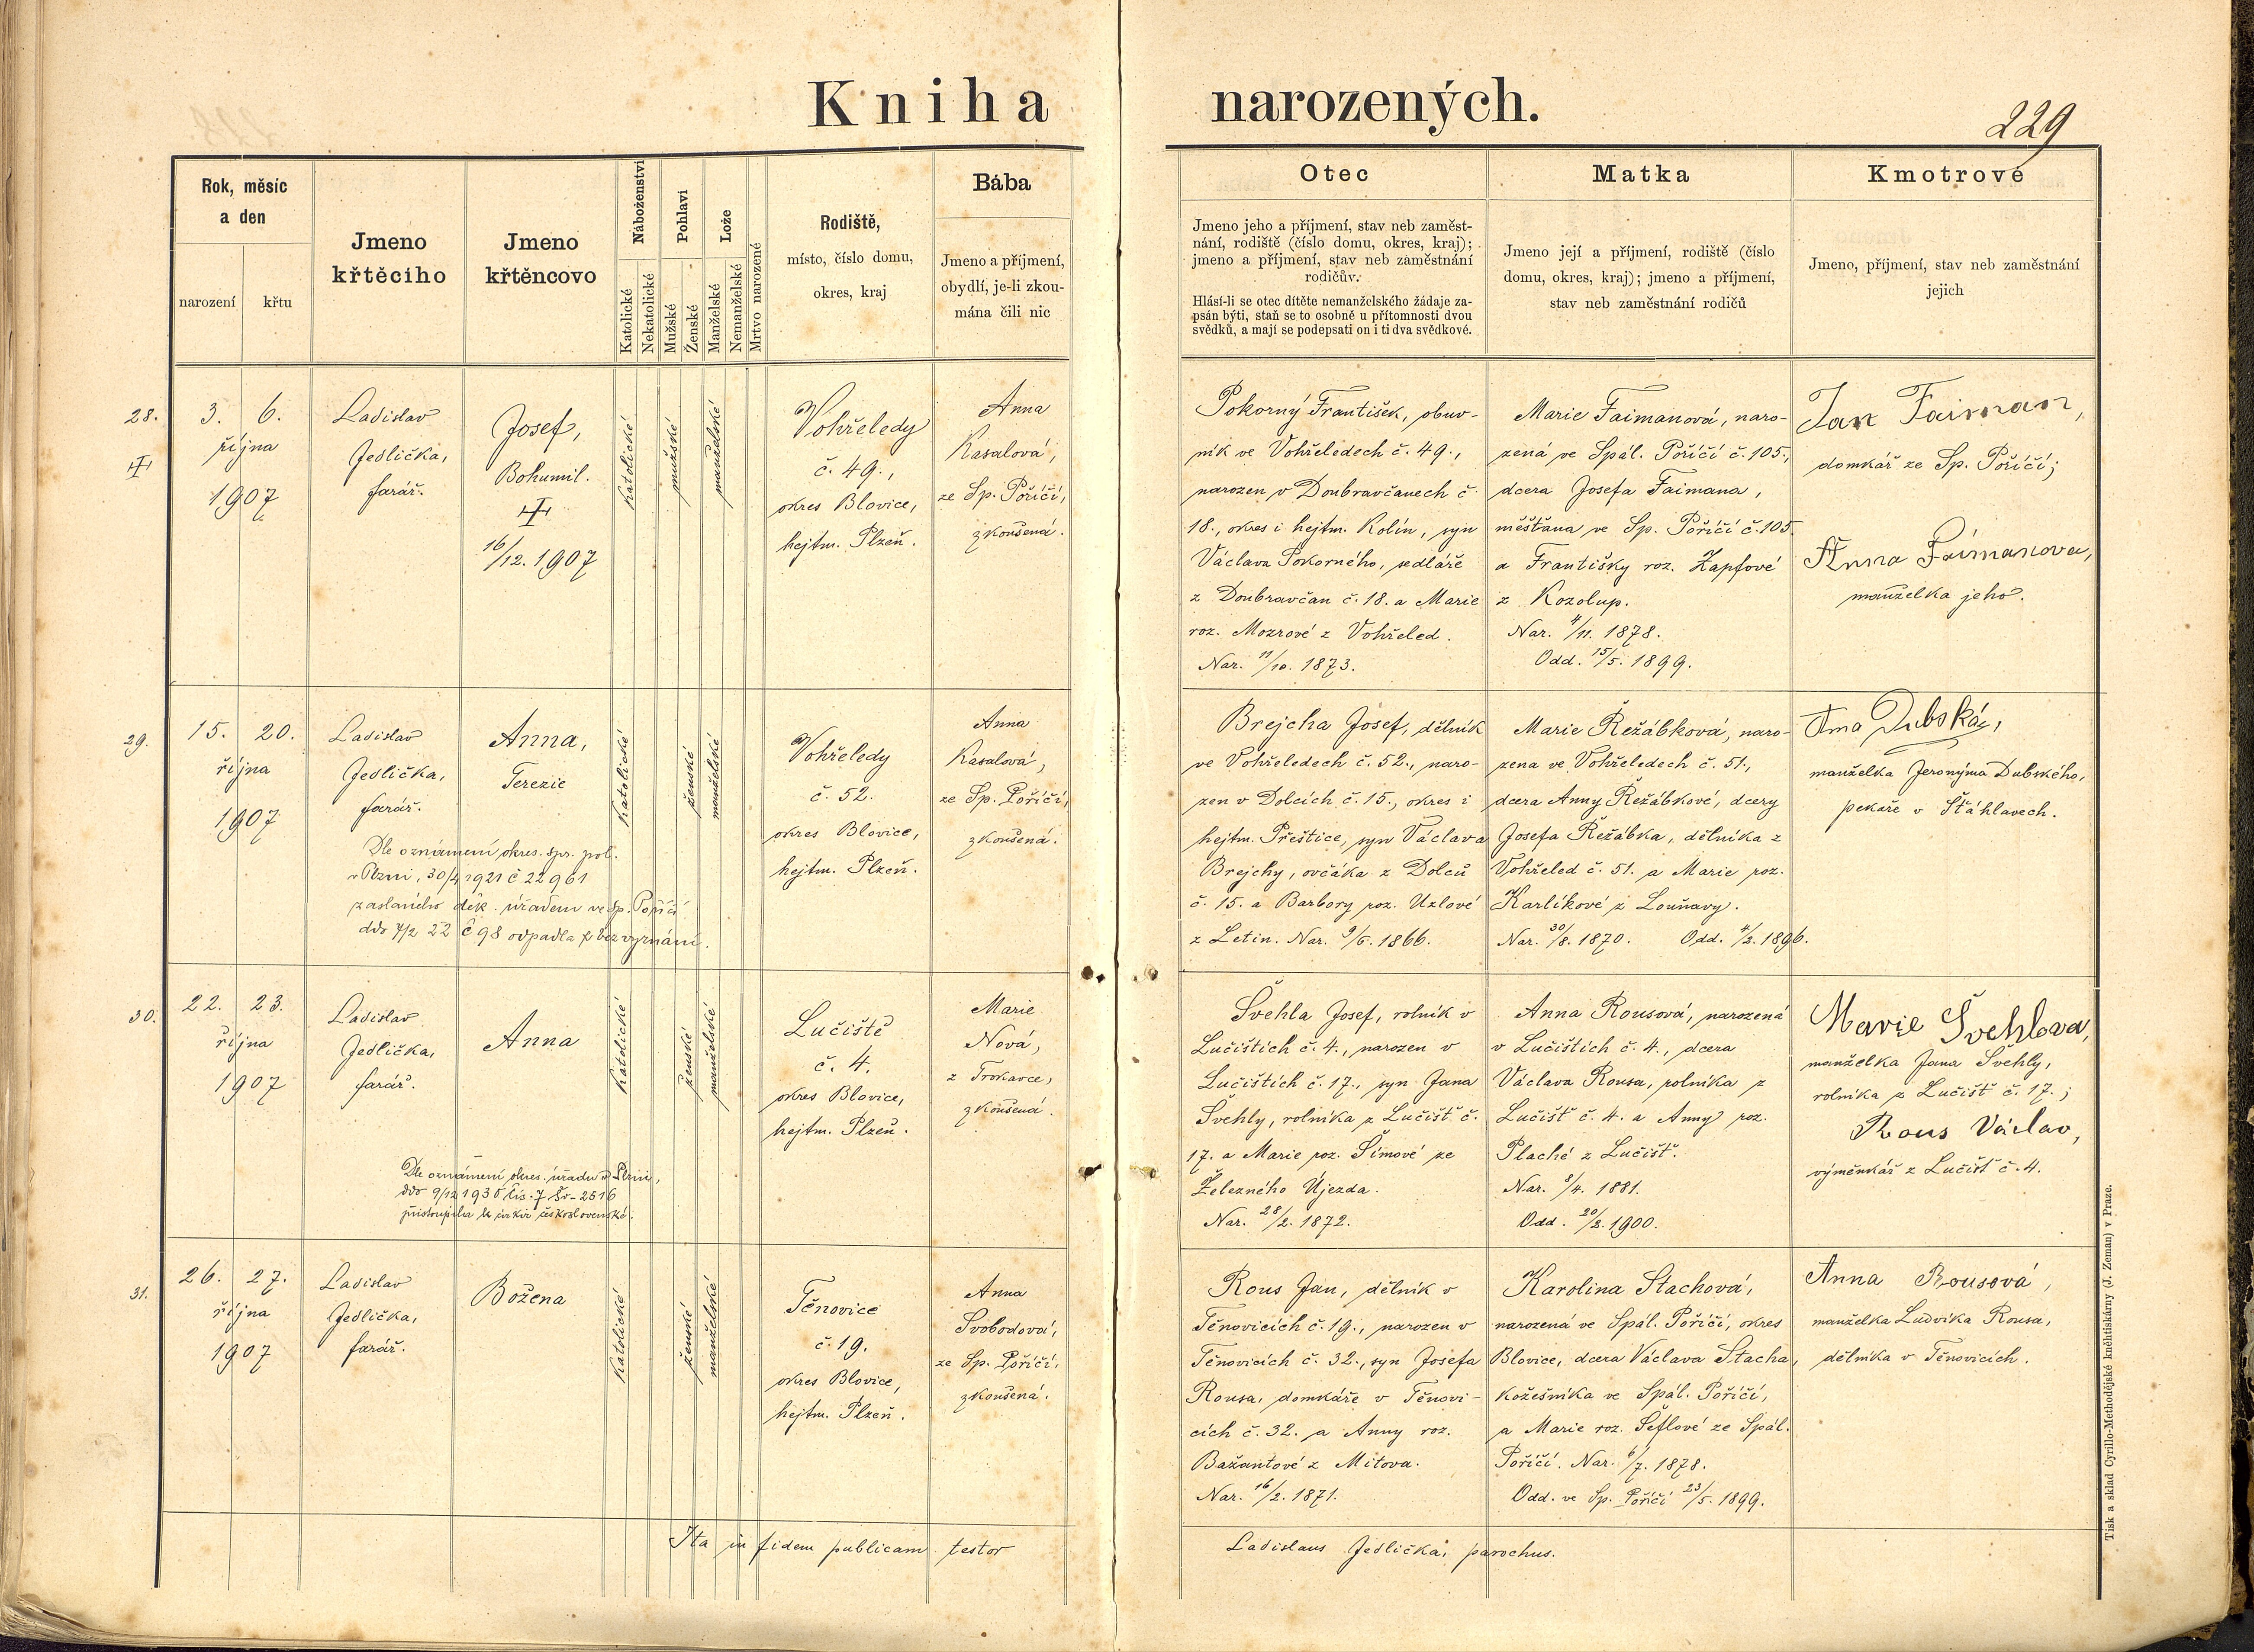 Kniha narozených.
229
Rok, měsíc
a den
narození
křtu
Jmeno
křtěcího
Jmeno
křtěncovo
Náboženství
Katolické
Nekatolické
Pohlaví
Mužské
Ženské
Lože
Manželské
Nemanželské
Mrtvo narozené
Rodiště,
místo, číslo domu,
okres, kraj
Bába
Jmeno a příjmení,
obydlí, je-li zkou-
mána čili nic
Otec
Jmeno jeho a příjmení, stav neb zaměst-
nání, rodiště (číslo domu, okres, kraj);
jmeno a příjmení, stav neb zaměstnání
rodičův.
Hlásí-li se otec dítěte nemanželského žádaje za-
psán býti, staň se to osobně u přítomnosti dvou
svědků, a mají se podepsati on i ti dva svědkové.
Matka
Jmeno její a příjmení, rodiště (číslo
domu, okres, kraj); jmeno a příjmení,
stav neb zaměstnání rodičů
Kmotrové
Jmeno, příjmení, stav neb zaměstnání
jejich
28.
3. 6.
října
1907
Ladislav
Jedlička,
farář.
Josef,
Bohumil.
16/12. 1907
katolické
mužské
manželské
Vohřeledy
č. 49.,
okres Blovice,
hejtm. Plzeň.
Anna
Kasalová,
ze Sp. Poříčí,
zkoušená.
Pokorný František, obuv-
ník ve Vohřeledech č. 49.,
narozen v Doubravčanech č.
18., okres i hejtm. Kolín, syn
Václava Pokorného, sedláře
z Doubravčan č. 18. a Marie
roz. Mozrové z Vohřeled.
Nar. 11/10. 1873.
Marie Faimanová, naro-
zená ve Spál. Poříčí č. 105.,
dcera Josefa Faimana,
měšťana ve Sp. Poříčí č. 105.
a Františky roz. Zapfové
z Kozolup.
Nar. 4/11. 1878.
Odd. 15/5. 1899.
Jan Faiman,
domkář ze Sp. Poříčí;
Anna Faimanova,
manželka jeho.
29.
15. 20.
října
1907
Ladislav
Jedlička,
farář.
Anna,
Terezie
Dle oznámení okres. spr. pol.
v Plzni, 30/4 1921 č 22961
zaslaného děk. úřadem ve Sp. Poříčí
ddo 7/2 22 č 98 odpadla k bez vyznání.
katolické
ženské
manželské
Vohřeledy
č. 52.
okres Blovice,
hejtm. Plzeň.
Anna
Kasalová,
ze Sp. Poříčí,
zkoušená.
Brejcha Josef, dělník
ve Vohřeledech č. 52., naro-
zen v Dolcích č. 15., okres i
hejtm. Přeštice, syn Václava
Brejchy, ovčáka z Dolců
č. 15. a Barbory roz. Uzlové
z Letin. Nar. 9/6. 1866.
Marie Řežábková, naro-
zena ve Vohřeledech č. 51.,
dcera Anny Řežábkové, dcery
Josefa Řežábka, dělníka z
Vohřeled č. 51. a Marie roz.
Karlíkové z Louňavy.
Nar. 30/8. 1870. Odd. 4/2. 1896.
Dubská,
manželka Jeronýma Dubského,
pekaře v Štáhlavech.
30.
22. 23.
října
1907
Ladislav
Jedlička,
farář.
Anna
Dle oznámení okres. úřadu v Plzni,
ddo 9/12 1930 čís. 7
přistoupila k církvi československé.
katolické
ženské
manželské
Lučiště
č. 4.
okres Blovice,
hejtm. Plzeň.
Marie
Nová,
z Trokavce,
zkoušená.
Švehla Josef, rolník v
Lučištích č. 4., narozen v
Lučištích č. 17., syn Jana
Švehly, rolníka z Lučišť č.
17. a Marie roz. Šímové ze
Železného Újezda.
Nar. 28/2. 1872.
Anna Rousová, narozená
v Lučištích č. 4., dcera
Václava Rousa, rolníka z
Lučišť č. 4. a Anny roz.
Plaché z Lučišť.
Nar. 8/4. 1881.
Odd. 20/2. 1900.
Marie Švehlova,
manželka Jana Švehly,
rolníka z Lučišť č. 17.;
Rous Václav,
výměnkář z Lučišť č. 4.
31.
26. 27.
října
1907
Ladislav
Jedlička,
farář.
Božena
katolické
ženské
manželské
Těnovice
č. 19.
okres Blovice,
hejtm. Plzeň.
Anna
Svobodová,
ze Sp. Poříčí,
zkoušená.
Rous Jan, dělník v
Těnovicích č. 19., narozen v
Těnovicích č. 32., syn Josefa
Rousa, domkáře v Těnovi-
cích č. 32. a Anny roz.
Bažantové z Mítova.
Nar. 16/2. 1871.
Karolina Stachová,
narozená ve Spál. Poříčí, okres
Blovice, dcera Václava Stacha,
kožešníka ve Spál. Poříčí,
a Marie roz. Šeflové ze Spál.
Poříčí. Nar. 6/7. 1878.
Odd. ve Sp. Poříčí 23/5. 1899.
Anna Rousová,
manželka Ludvíka Rousa,
dělníka v Těnovicích.
Ita in fidem publicam testor
Ladislaus Jedlička, parochus.
Tisk a sklad Cyrillo-Methodějské kněhtiskárny (J. Zeman) v Praze.